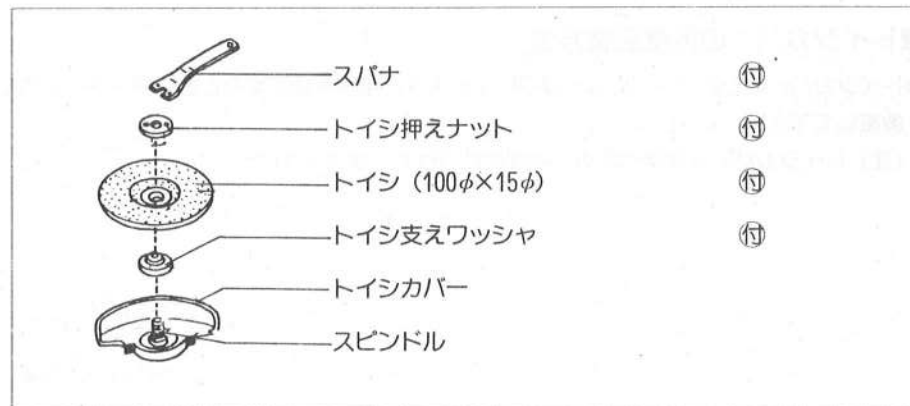 スパナ ㊕
トイシ押えナット
トイシ（100φ×15φ）
トイシ支えワッシャ
トイシカバー
スピンドル